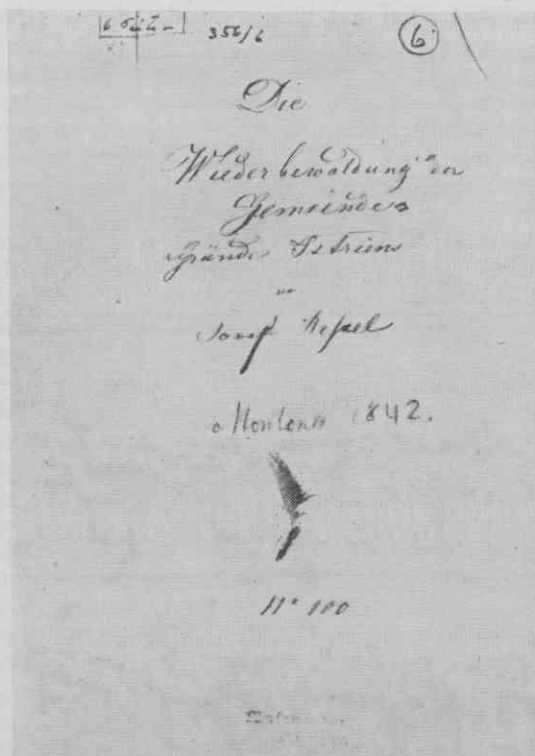 356/6
6
Die
Wiederbewaldung der
Gemeinde
Gründe Istriens
Josef Ressel
Montona 1842.
Nº 100